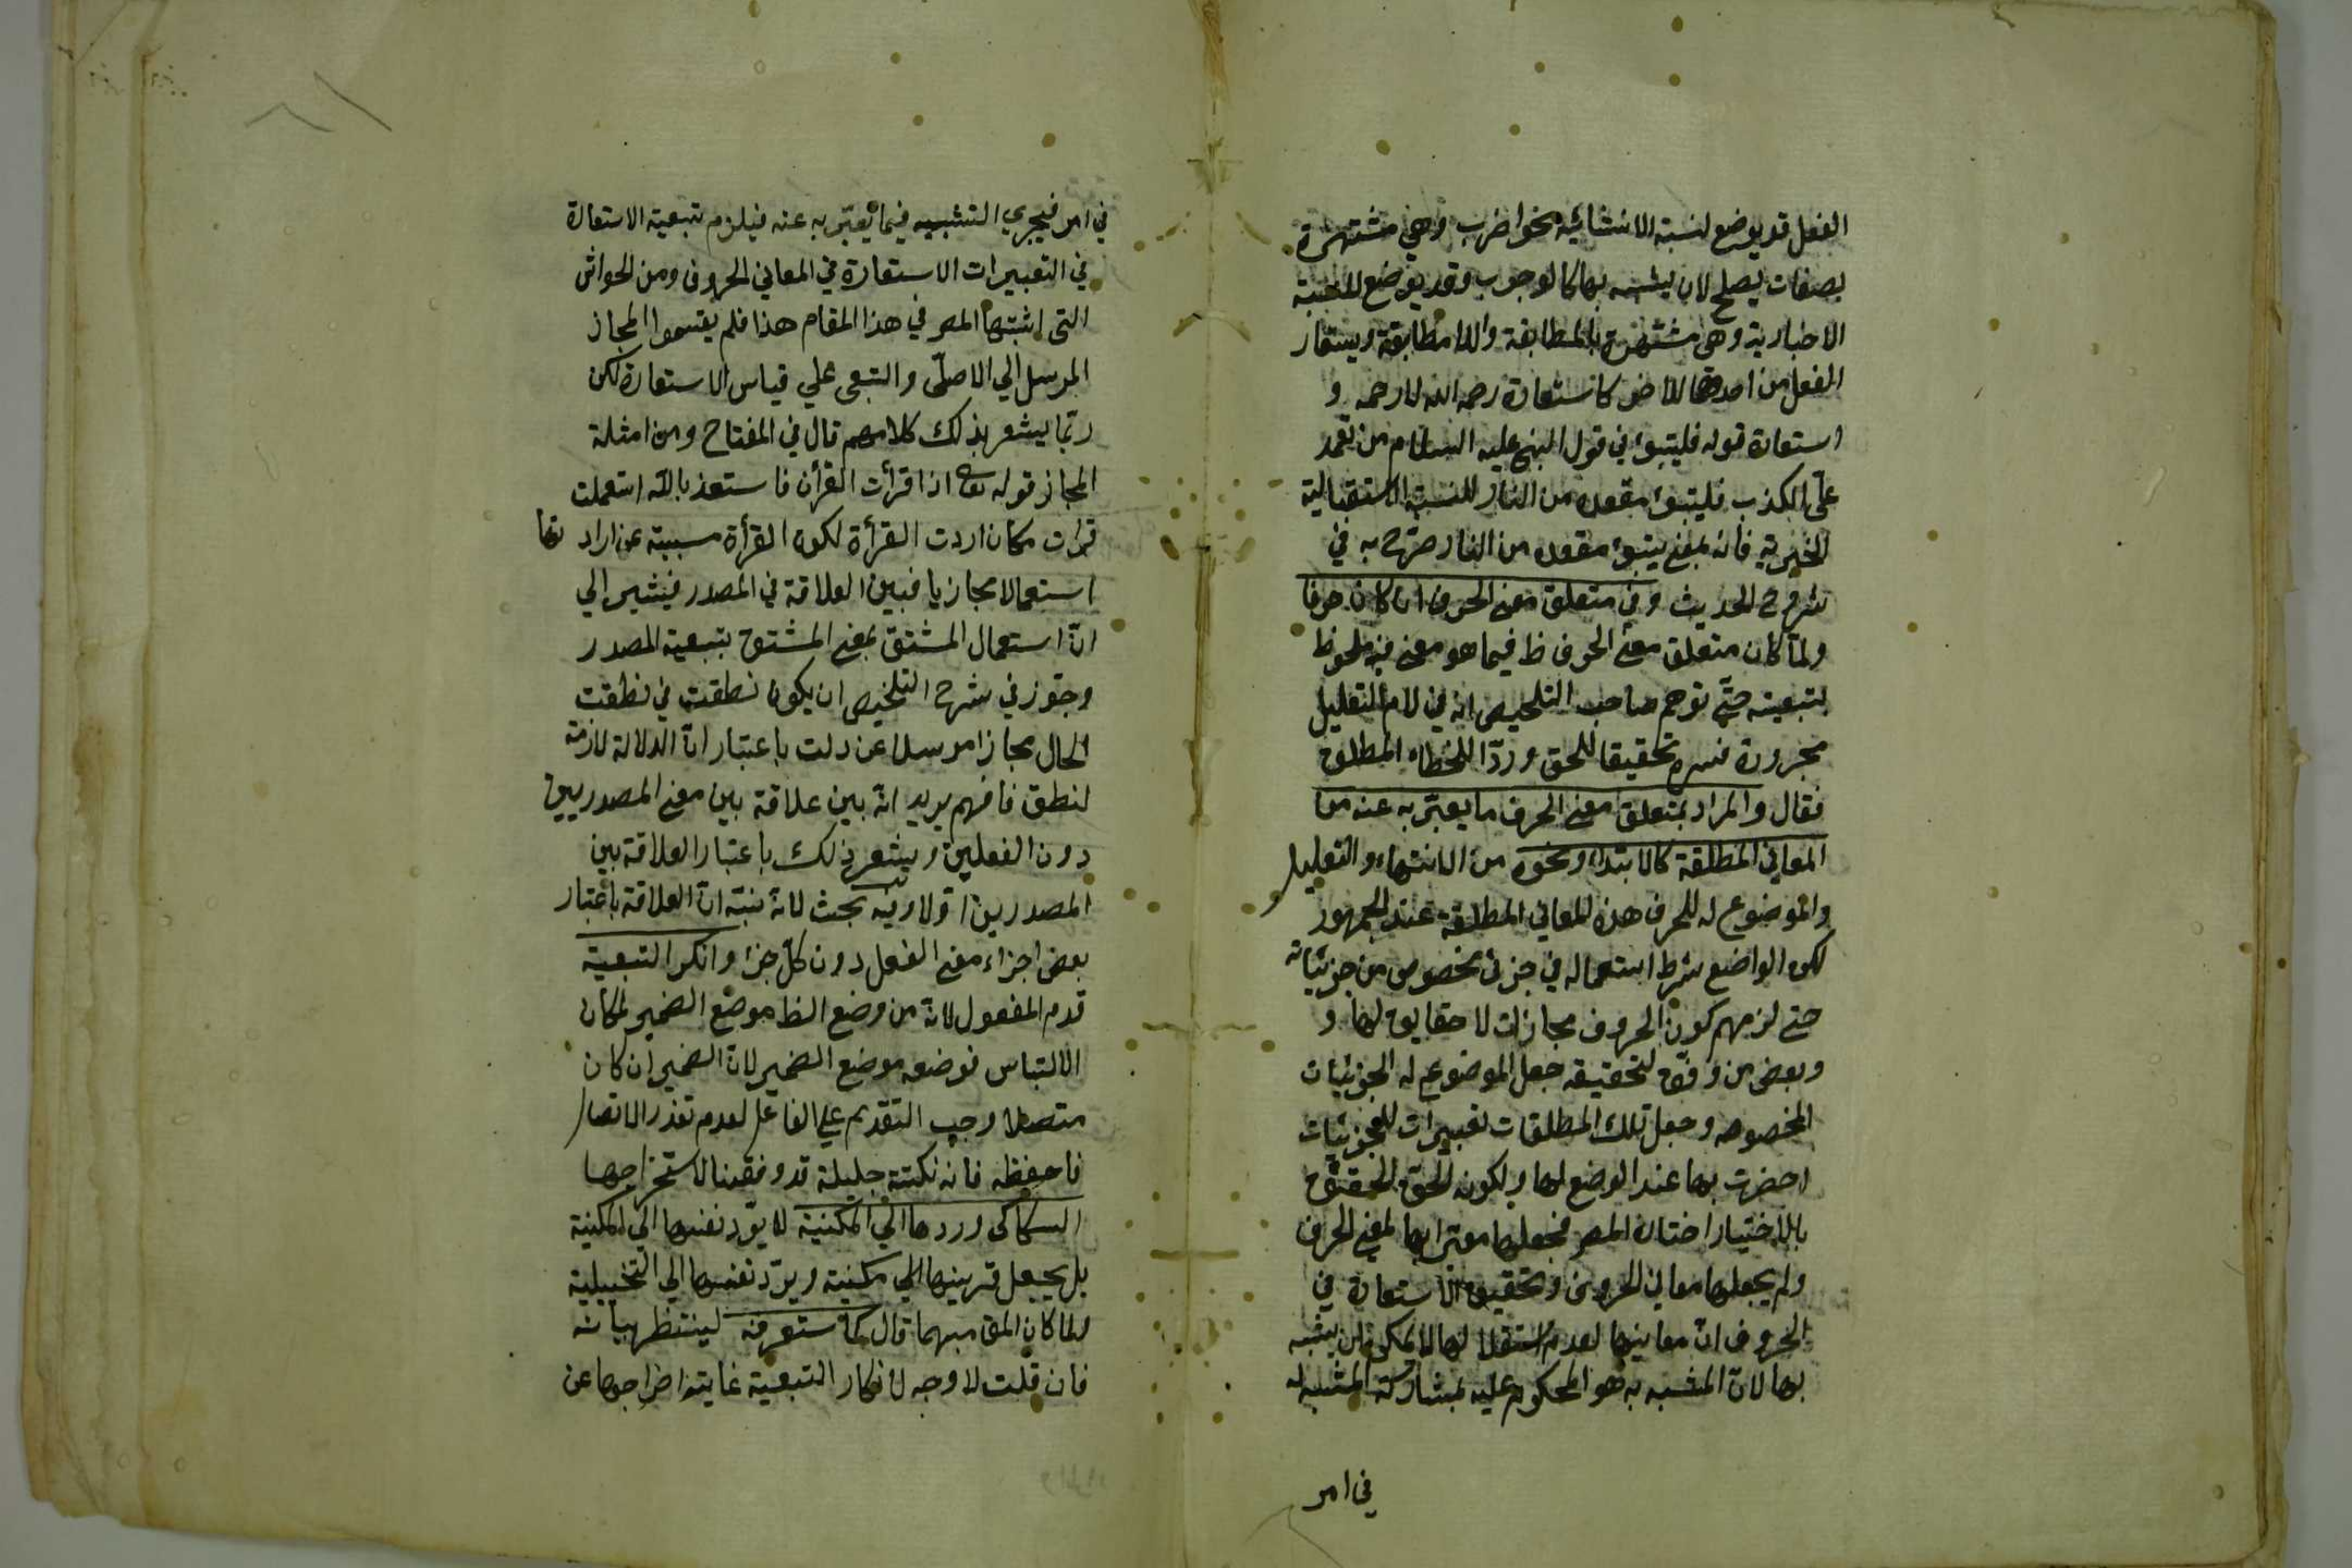 الفعل قد يوضع لنسبة الانشائيه نحو اضرب وهي مشتهرة
بصفات يصلح لان يشبه بها كالوجوب وقد يوضع للنسبة
الاخبارية وهي مشتهرة بالمطابقة واللامطابقة ويستعار
الفعل من احدهما للاخر كاستعارة رحمه الله لارحمه و
استعارة قوله فليتبوأ في قول النبي عليه السلام من تعمد
علي الكذب فليتبوأ مقعده من النار للنسبة الاستقبالية
الخبرية فانه بمعني يتبوأ مقعده من النار صرّح به في
شروح الحديث وفي متعلق معني الحرف ان كان حرفا
ولما كان متعلق معني الحرف ظ فيما هو معني فيه ملحوظ
بتبعيته حتي توهم صاحب التلخيص انه في لام التعليل
مجرورة فسره تحقيقا للحق وردّا للخطاء المطلق
فقال والمراد بمتعلق معني الحرف ما يعبّر به عنه من
المعاني المطلقة كالابتداء ونحوه من الانتهاء والتعليل
والموضوع له للحرف هذه المعاني المطلقة عند الجمهور
لكن الواضع شرط استعماله في جزئ مخصوص من جزئياته
حتي لزمهم كون الحروف مجازات لا حقايق لها و
وبعض من وفّق لتحقيقه جعل الموضوع له الجزئيات
المخصوصه وجعل تلك المطلقات تعبيرات للجزئيات
احضرت بها عند الوضع لها ولكونه الحق الحقيق
بالاختيار اختاره المصـ فجعلها معبّرا بها لمعني الحرف
ولم يجعلها معاني الحروف وتحقيق الاستعارة في
الحروف انّ معانيها لعدم استقلالها لا يمكن ان يشبه
بها لانّ المشبه به هو المحكوم عليه بمشاركة المشبه له
في امر
في امر فيجري التشبيه فيما يعبّر به عنه فيلزم تبعية الاستعارة
في التعبيرات الاستعارة في المعاني الحروف ومن الحواشي
التي اثبتها المصـ في هذا المقام هذا فلم يقسموا المجاز
المرسل الي الاصلّي والتبعي علي قياس الاستعارة لكن
ربّما يشعر بذلك كلامهم قال في المفتاح ومن امثلة
المجاز قوله تعالي اذا قرأت القرأن فاستعذ بالله استعملت
قرات مكان اردت القرأة لكون القرأة مسببة عن ارادتها
استعمالا مجازيا فبين العلاقة في المصدر فيشير الي
انّ استعمال المشتق بمعني المشتق بتبعية المصدر
وجوّز في شرح التلخيص ان يكون نطقت في نطقت
الحال مجازا مرسلا عن دلت باعتبار انّ الدلالة لازمة
لنطق فافهم يريد انّه بين علاقة بين معني المصدريين
دون الفعلين ويشعر ذلك باعتبار العلاقة بين
المصدرين اوّلا وفيه بحث لانه نبّه انّ العلاقة باعتبار
بعض اجزاء معني الفعل دون كلّ جزء وانكر التبعية
قدم المفعول لانّه من وضع الظ موضع الضمير لمكان
الالتباس فوضعه موضع الضمير لانّ الضمير ان كان
متصلا وجب التقديم علي الفاعل لعدم تعذر الاتصال
فاحفظه فانه نكتة جليلة قد وفقنا لاستخراجها
السكاكي وردها الي المكنية لا يرّد نفسها الي المكنية
بل يجعل قرينها الي مكنية ويرّد نفسها الي التخييلية
ولما كان المق مبهما قال كما ستعرفه لينتظر بيانه
فان قلت لا وجه لانكار التبعية غايته اخراجها عن